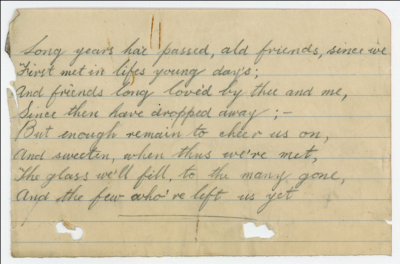 Long years ha'e passed, old friends, since we
First met in lifes young days;
And friends long lov'd by thee and me,
Since then have dropped away ;-
But enough remain to cheer us on,
And sweeten, when thus we're met,
The glass we'll fill, to the many gone,
And the few who're left us yet